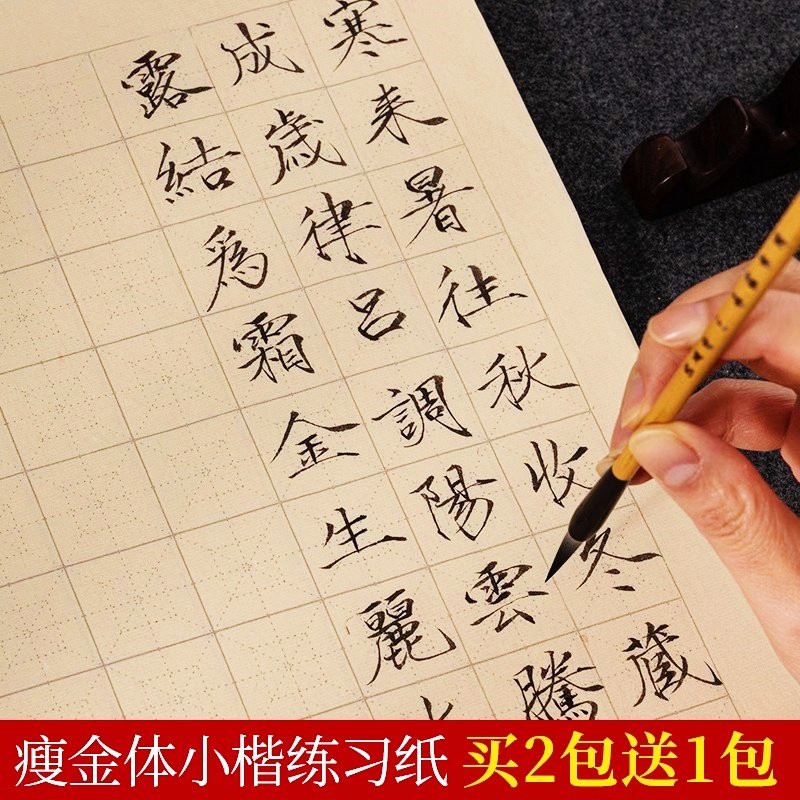 寒来暑往秋收冬蔵
成歳律呂調陽雲騰
露結爲霜金生麗
瘦金体小楷练习纸 买2包送1包